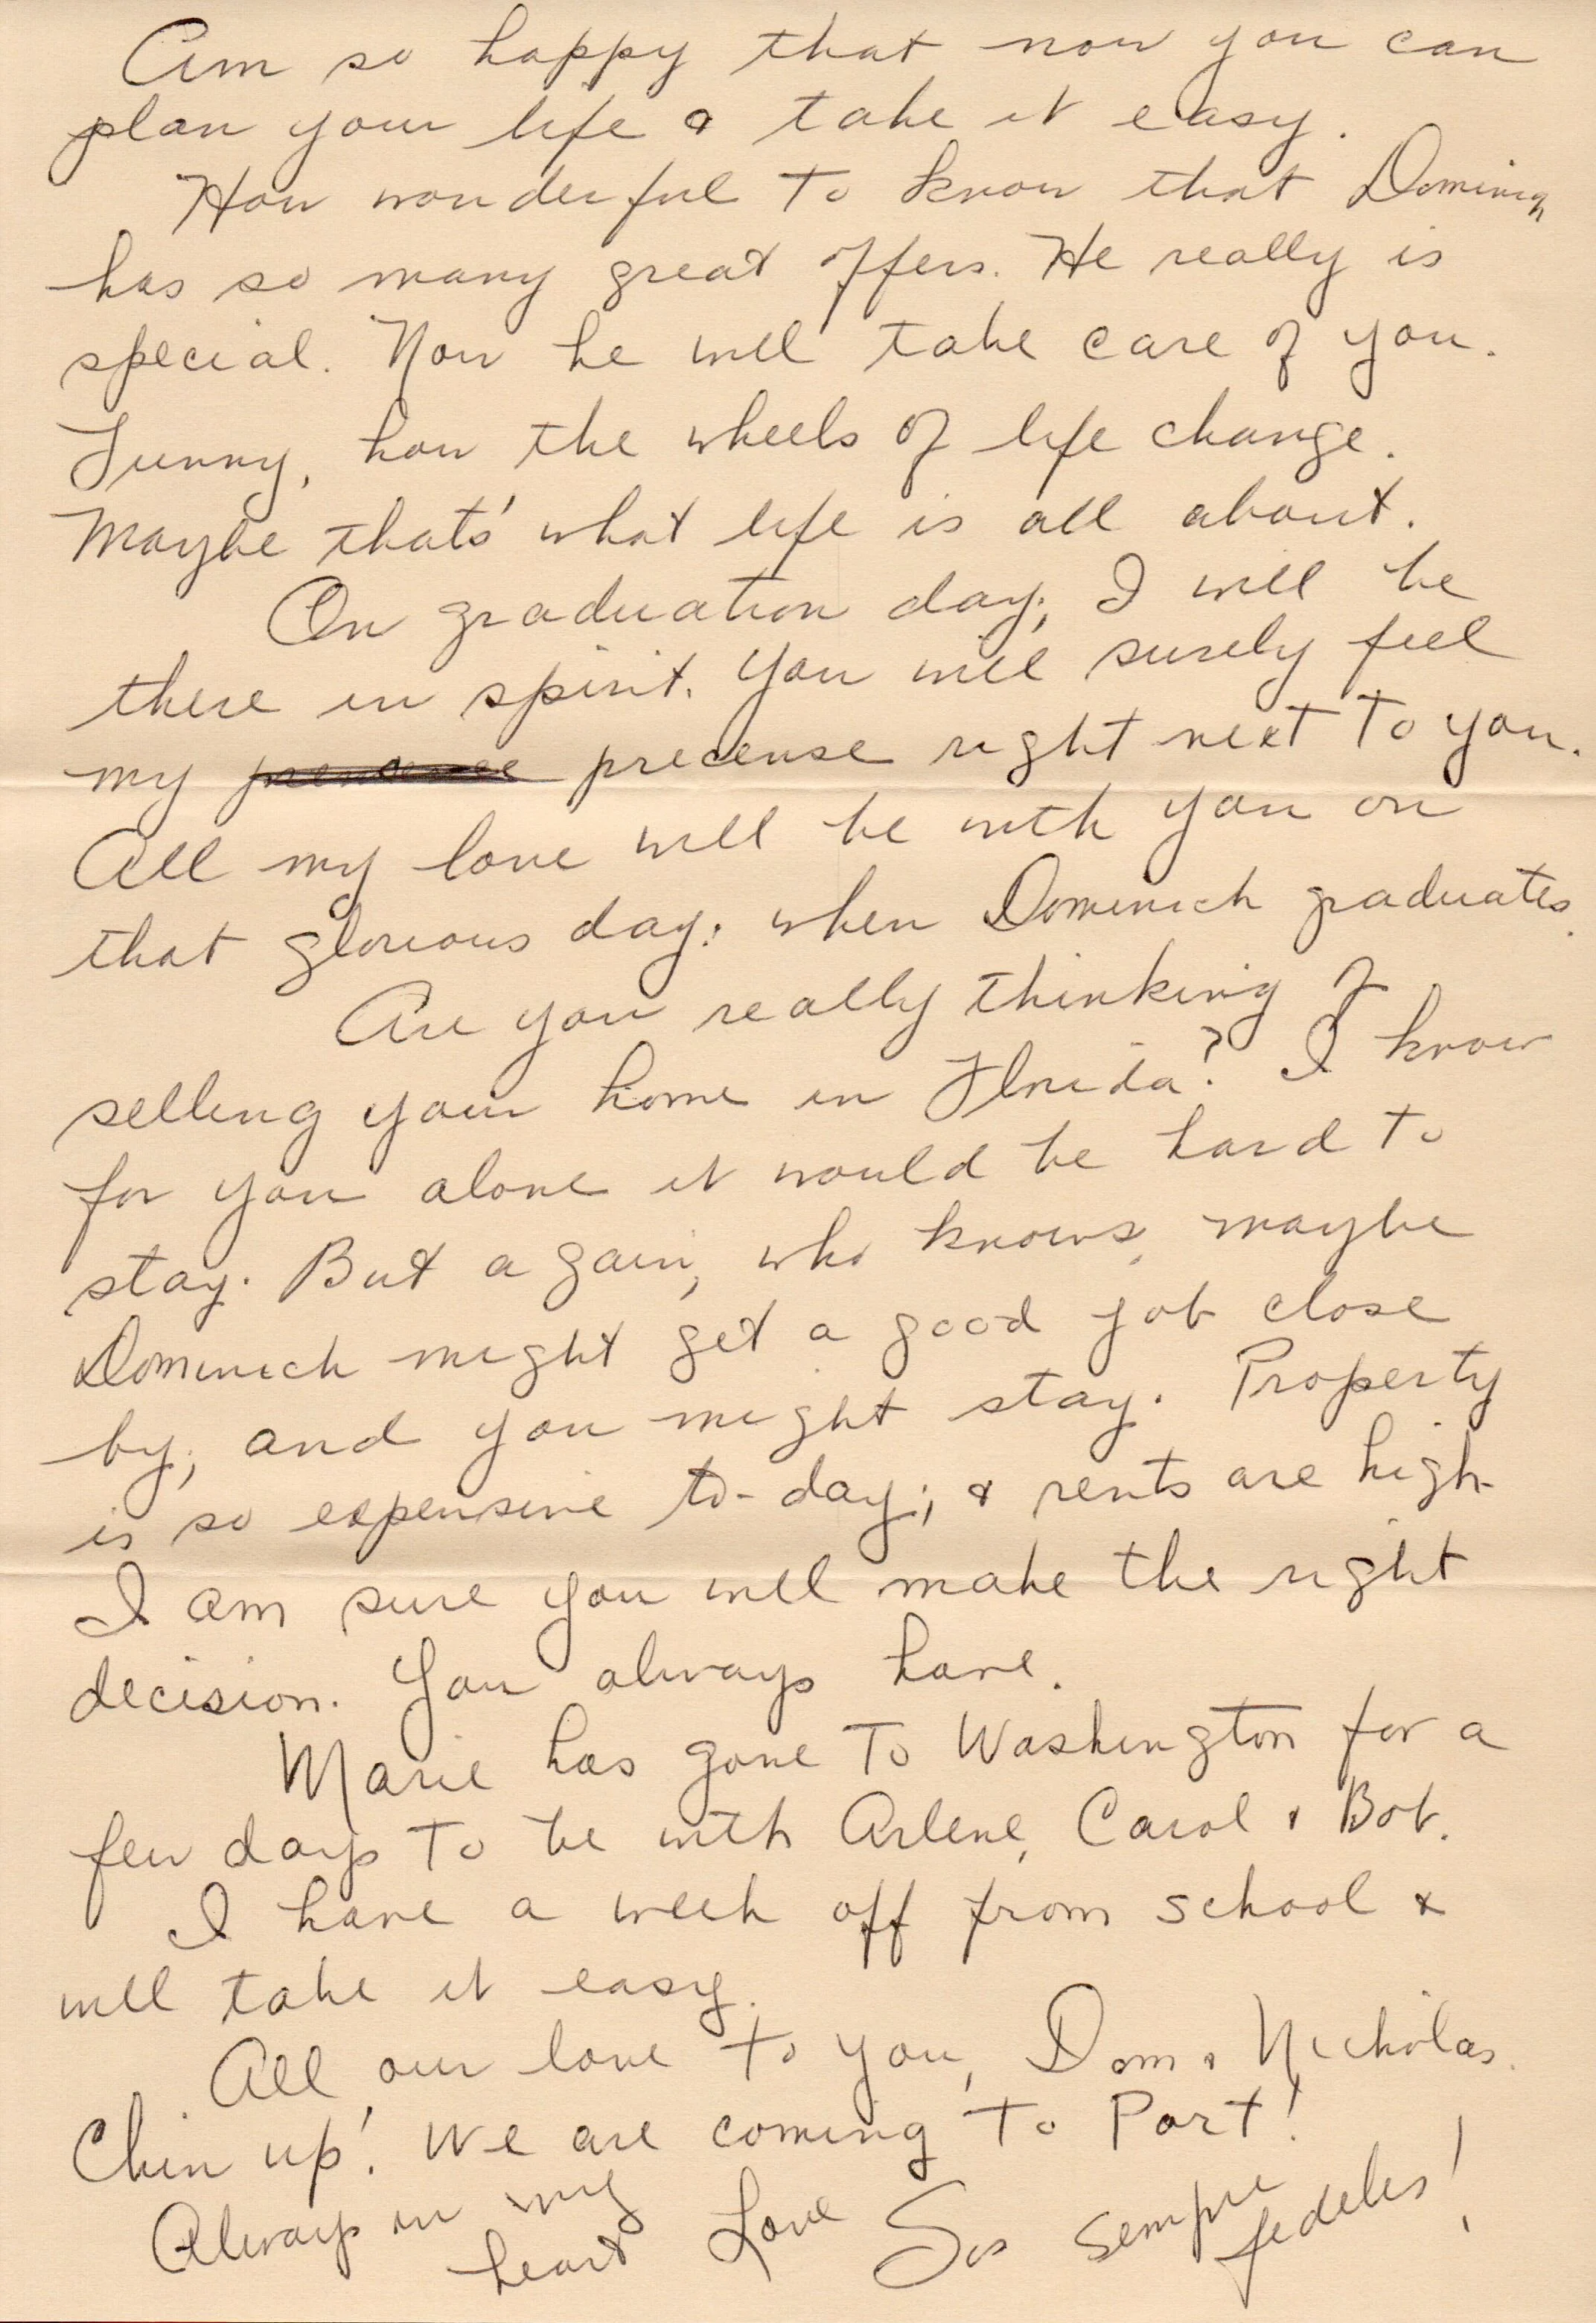 Am so happy that now you can
plan your life & take it easy.
How wonderful to know that Dominick
has so many great offers. He really is
special. Now he will take care of you.
Funny, how the wheels of life change.
Maybe thats' what life is all about.
On graduation day, I will be
there in spirit. You will surely feel
my precense right next to you.
All my love will be with you on
that glorious day; when Dominick graduates.
Are you really thinking of
selling your home in Florida? I know
for you alone it would be hard to
stay. But again, who knows, maybe
Dominick might get a good job close
by; and you might stay. Property
is so expensive to-day; & rents are high-
I am sure you will make the right
decision. You always have.
Marie has gone to Washington for a
few days to be with Arlene, Carol & Bob.
I have a week off from school &
will take it easy.
All our love to you, Dom & Nicholas.
Chin up! We are coming to Port!
Always in my
heart Love Sis Sempre
fedeles!